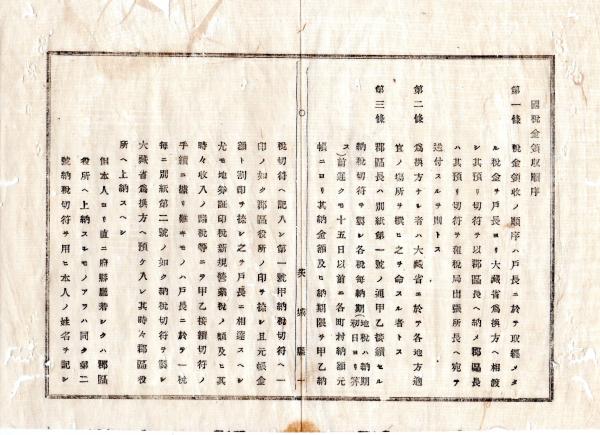 國税金領収順序
第一條　税金領收ノ順序ハ戸長ニ於テ取纒メタ
ル税金ヲ戸長ヨリ大藏省爲換方ヘ相渡
シ其預リ切符ヲ以郡區長ヘ納メ郡區長
ハ其預リ切符ヲ租税局出張所長ヘ宛テ
送付スルヲ則トス
第二條　爲換方ナル者ハ大藏省ニ於テ各地方適
宜ノ塲所ヲ撰ヒ之ヲ命スル者トス
第三條　郡區長ハ別紙第一號ノ通甲乙接續セル
納税切符ヲ製シ各税毎納期(地税ハ納期初日ヨリ算
ス)前遲クモ十五日以前ニ各町村納額元
帳ニヨリ其納金額及ヒ納期限ヲ甲乙納
茨城縣
税切符ヘ記入シ第一號甲納税切符ヘ一
印ノ如ク郡區役所ノ印ヲ捺シ且元帳金
額ト割印ヲ捺シ之ヲ戸長ニ相達スヘシ
尤モ地劵証印税新規營業税ノ類及ヒ其
時々收入ノ諸税等ニテ甲乙接續切符ノ
手續ニ據リ難キモノハ戸長ニ於テ一税
毎ニ別紙第二號ノ如ク納税切符ヲ製シ
大藏省爲換方ヘ預ケ入レ其時々郡區役
所ヘ上納スヘシ
但本人ヨリ直ニ府縣廳若シクハ郡區
役所ヘ上納スルモノアラハ同ク第二
號納税切符ヲ用ヒ本人ノ姓名ヲ記シ